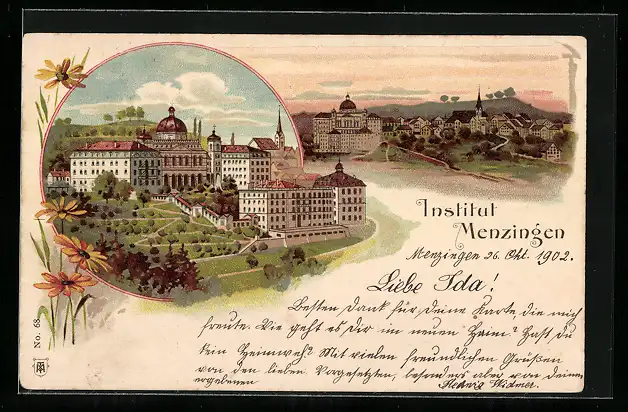 Institut
Menzingen
Menzingen 26. Okt. 1902.
Liebe Ida!
Besten Dank für deine Karte, die mich
freute. Wie geht es dir im neuen Heim? Hast du
kein Heimweh? Mit vielen freundlichen Grüßen
von den lieben Vorgesetzten, besonders aber von deiner
ergebenen Hedwig Widmer.
No. 68